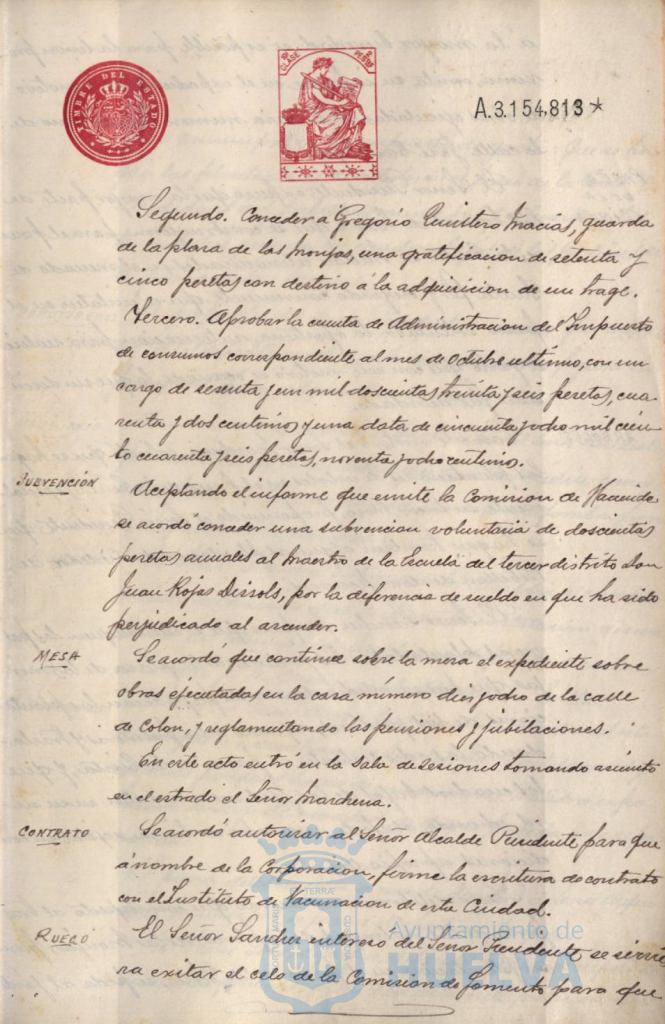 TIMBRE DEL ESTADO
10ª CLASE
2 PESETAS
A.3.154.813 *
Segundo. Conceder a Gregorio Quintero Macias, guarda
de la plaza de las Monjas, una gratificacion de setenta y
cinco pesetas con destino á la adquisicion de un trage.
Tercero. Aprobar la cuenta de Administracion del Impuesto
de consumos correspondiente al mes de Octubre ultimo, con un
cargo de sesenta y un mil doscientas treinta y seis pesetas, cua
renta y dos centimos y una data de cincuenta y ocho mil cien
to cuarenta y seis pesetas, noventa y ocho centimos.
SUBVENCIÓN
Aceptando el informe que emite la Comision de Hacienda
se acordó conceder una subvencion voluntaria de doscientas
pesetas anuales al Maestro de la Escuela del tercer distrito Don
Juan Rojas Dissols, por la diferencia de sueldo en que ha sido
perjudicado al ascender.
MESA
Se acordó que continue sobre la mesa el expediente sobre
obras ejecutadas en la casa número diez y ocho de la calle
de Colon, y reglamentando las pensiones y jubilaciones.
En este acto entró en la Sala de sesiones tomando asiento
en el estrado el Señor Marchena.
CONTRATO
Se acordó autorizar al Señor Alcalde Presidente para que
á nombre de la Corporacion, firme la escritura de contrato
con el Instituto de Vacunacion de esta Ciudad.
RUEGO
El Señor Sanchez intereso del Señor Presidente se servie
ra exitar el celo de la Comision de Fomento para que
Ayuntamiento de
HUELVA